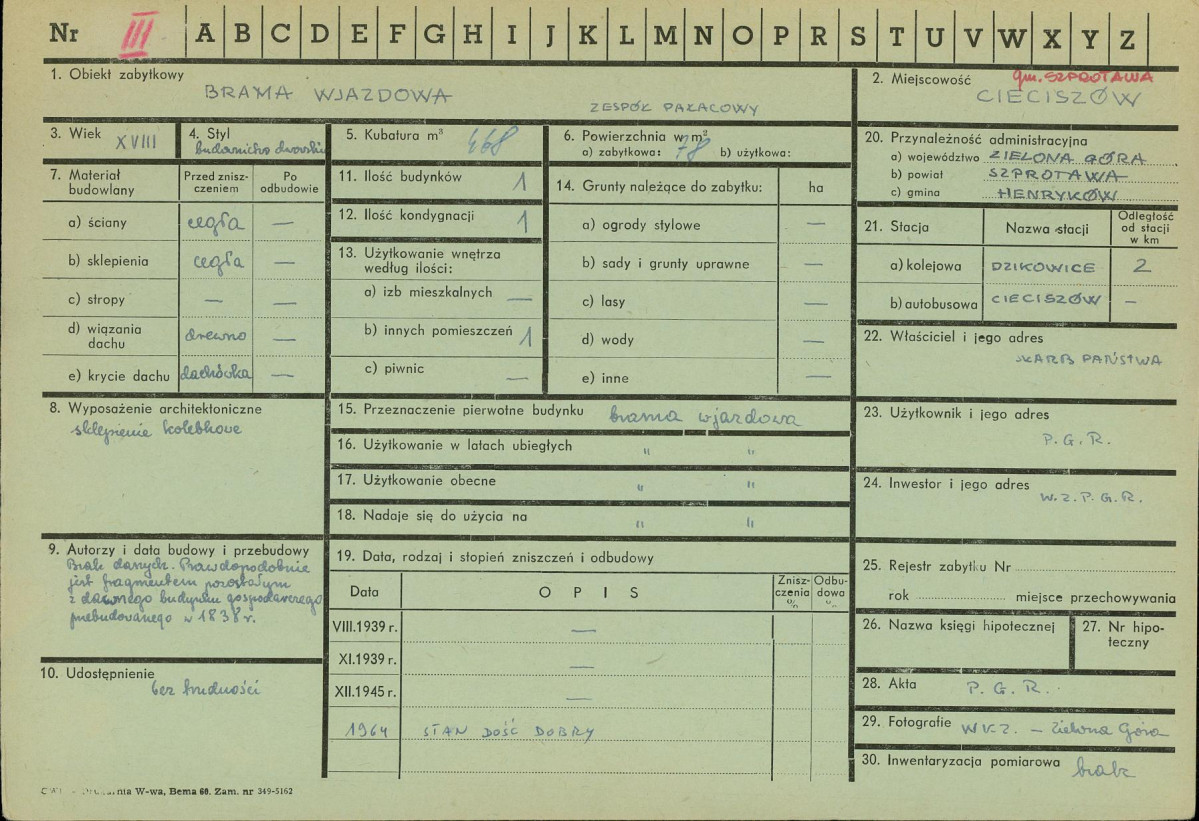 Nr III A B C D E F G H I J K L M N O P R S T U V W X Y Z
1. Obiekt zabytkowy
BRAMA WJAZDOWA
ZESPÓŁ PAŁACOWY
2. Miejscowość gm. SZPROTAWA
CIECISZÓW
3. Wiek XVIII
4. Styl
budownictwo dworskie
5. Kubatura m³ 468
6. Powierzchnia w m²
a) zabytkowa: 78 b) użytkowa:
7. Materiał budowlany
Przed zniszczeniem
Po odbudowie
a) ściany cegła —
b) sklepienia cegła —
c) stropy — —
d) wiązania dachu drewno —
e) krycie dachu dachówka —
8. Wyposażenie architektoniczne
sklepienie kolebkowe
9. Autorzy i data budowy i przebudowy
Brak danych. Prawdopodobnie
jest fragmentem pozostałym
z dawnego budynku gospodarczego
przebudowanego w 1838 r.
10. Udostępnienie
bez trudności
11. Ilość budynków 1
12. Ilość kondygnacji 1
13. Użytkowanie wnętrza
według ilości:
a) izb mieszkalnych —
b) innych pomieszczeń 1
c) piwnic —
14. Grunty należące do zabytku: ha
a) ogrody stylowe —
b) sady i grunty uprawne —
c) lasy —
d) wody —
e) inne —
15. Przeznaczenie pierwotne budynku brama wjazdowa
16. Użytkowanie w latach ubiegłych " "
17. Użytkowanie obecne " "
18. Nadaje się do użycia na " "
19. Data, rodzaj i stopień zniszczeń i odbudowy
Data OPIS Zniszczenia % Odbudowa %
VIII.1939 r. —
XI.1939 r. —
XII.1945 r. —
1964 STAN DOŚĆ DOBRY
20. Przynależność administracyjna
a) województwo ZIELONA GÓRA
b) powiat SZPROTAWA
c) gmina HENRYKÓW
21. Stacja Nazwa stacji Odległość od stacji w km
a) kolejowa DZIKOWICE 2
b) autobusowa CIECISZÓW —
22. Właściciel i jego adres
SKARB PAŃSTWA
23. Użytkownik i jego adres
P.G.R.
24. Inwestor i jego adres
W.Z.P.G.R.
25. Rejestr zabytku Nr
rok miejsce przechowywania
26. Nazwa księgi hipotecznej
27. Nr hipoteczny
28. Akta P.G.R.
29. Fotografie WKZ. – Zielona Góra
30. Inwentaryzacja pomiarowa brak
W-wa, Bema 60. Zam. nr 349-5162